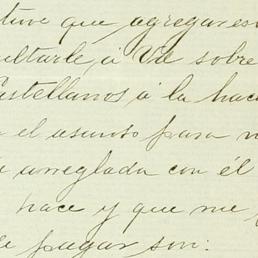 tuve que agregar es
ultarle á Vd sobre
Castellanos á la hac
el asunto para
arreglada con él
hace y que me
pagar son: